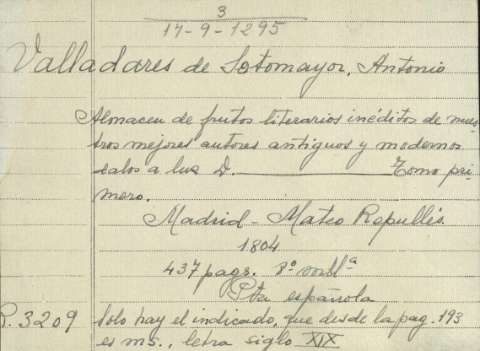 3
17-9-1295
Valladares de Sotomayor, Antonio
Almacen de frutos literarios inéditos de nues
tros mejores autores antiguos y modernos
salos a luz D. ________ Tomo pri
mero.
Madrid - Mateo Repullés.
1804
437 pags. 8º
Pta española
R. 3209 Solo hay el indicado, que desde la pag. 193
es ms., letra siglo XIX